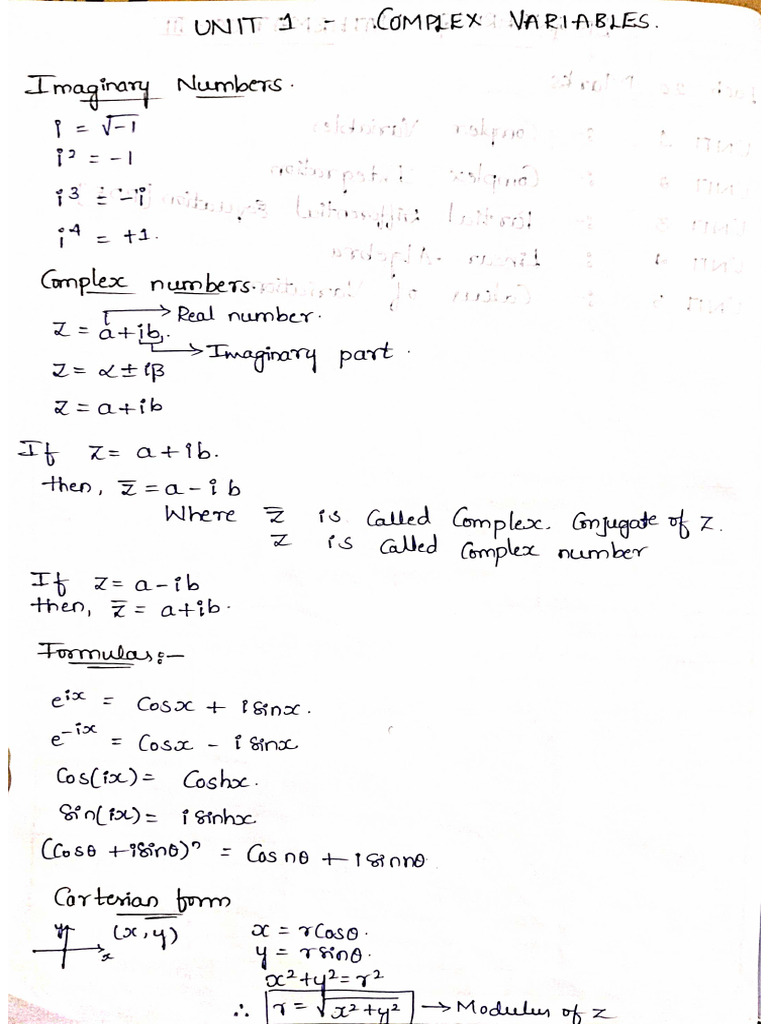 UNIT 1 - COMPLEX VARIABLES.
Imaginary Numbers.
i = √-1
i² = -1
i³ = -i
i⁴ = +1.
Complex numbers.
Real number.
z = a+ib.
Imaginary part.
z = α ± iβ
z = a+ib
If z = a+ib.
then, z̄ = a-ib
Where z̄ is called Complex. Conjugate of z.
z is called Complex number
If z = a-ib
then, z̄ = a+ib.
Formulas:-
e^ix = Cosx + isinx.
e^-ix = Cosx - i sinx
Cos(ix) = Coshx.
Sin(ix) = isinhx
(Cosθ + isinθ)ⁿ = Cos nθ + i sin nθ
Carterian form
y (x,y) x = rCosθ.
x y = rsinθ.
x²+y²=r²
∴ r = √x²+y² → Modulus of z